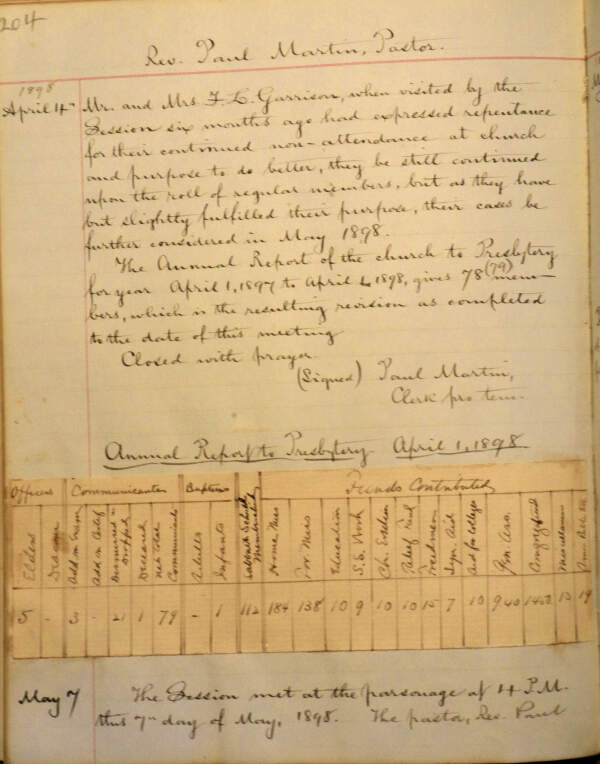 204
Rev. Paul Martin, Pastor.
1898
April 4th Mr. and Mrs. F. L. Garrison, when visited by the
Session six months ago had expressed repentance
for their continued non-attendance at church
and purpose to do better, they be still continued
upon the roll of regular members, but as they have
but slightly fulfilled their purpose, their cases be
further considered in May 1898.
The Annual Report of the church to Presbytery
for year April 1, 1897 to April 1, 1898, gives 78 (79) mem-
bers, which is the resulting revision as completed
to the date of this meeting
Closed with prayer.
(Signed) Paul Martin,
Clerk pro tem.
Annual Report to Presbytery April 1, 1898
Officers Communicants Baptisms Sabbath School Membership Funds Contributed
Elders Deacons Add on Exam Add on Certif Dismissed & Dropped Deceased Net total Communicants Adults Infants Home Miss For Miss Education S.S. Work Ch. Erection Relief Fund Freedmen Syn. Aid Aid for Colleges Gen. Ass. Congreg'nal Miscellaneous
5 - 3 - 21 1 79 - 1 112 184 138 10 9 10 10 15 7 10 9 40 1450 13 19
May 7 The Session met at the parsonage at 4 P.M.
this 7th day of May, 1898. The pastor, Rev. Paul